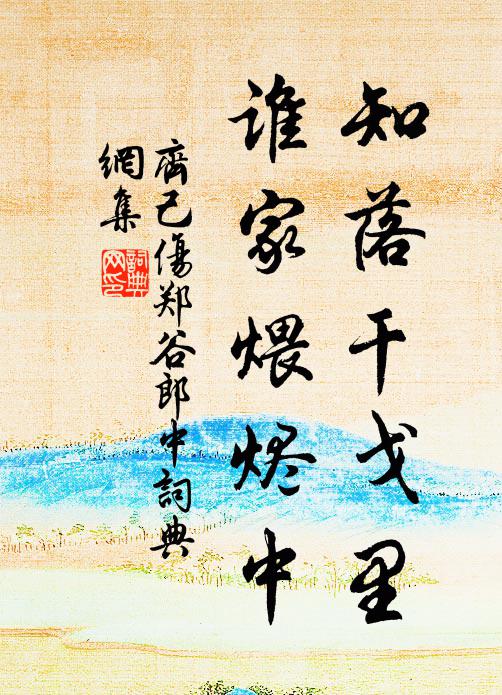 知落干戈里
谁家煨烬中
齊己傷郑谷郎中詞典
網集
詞典
网印